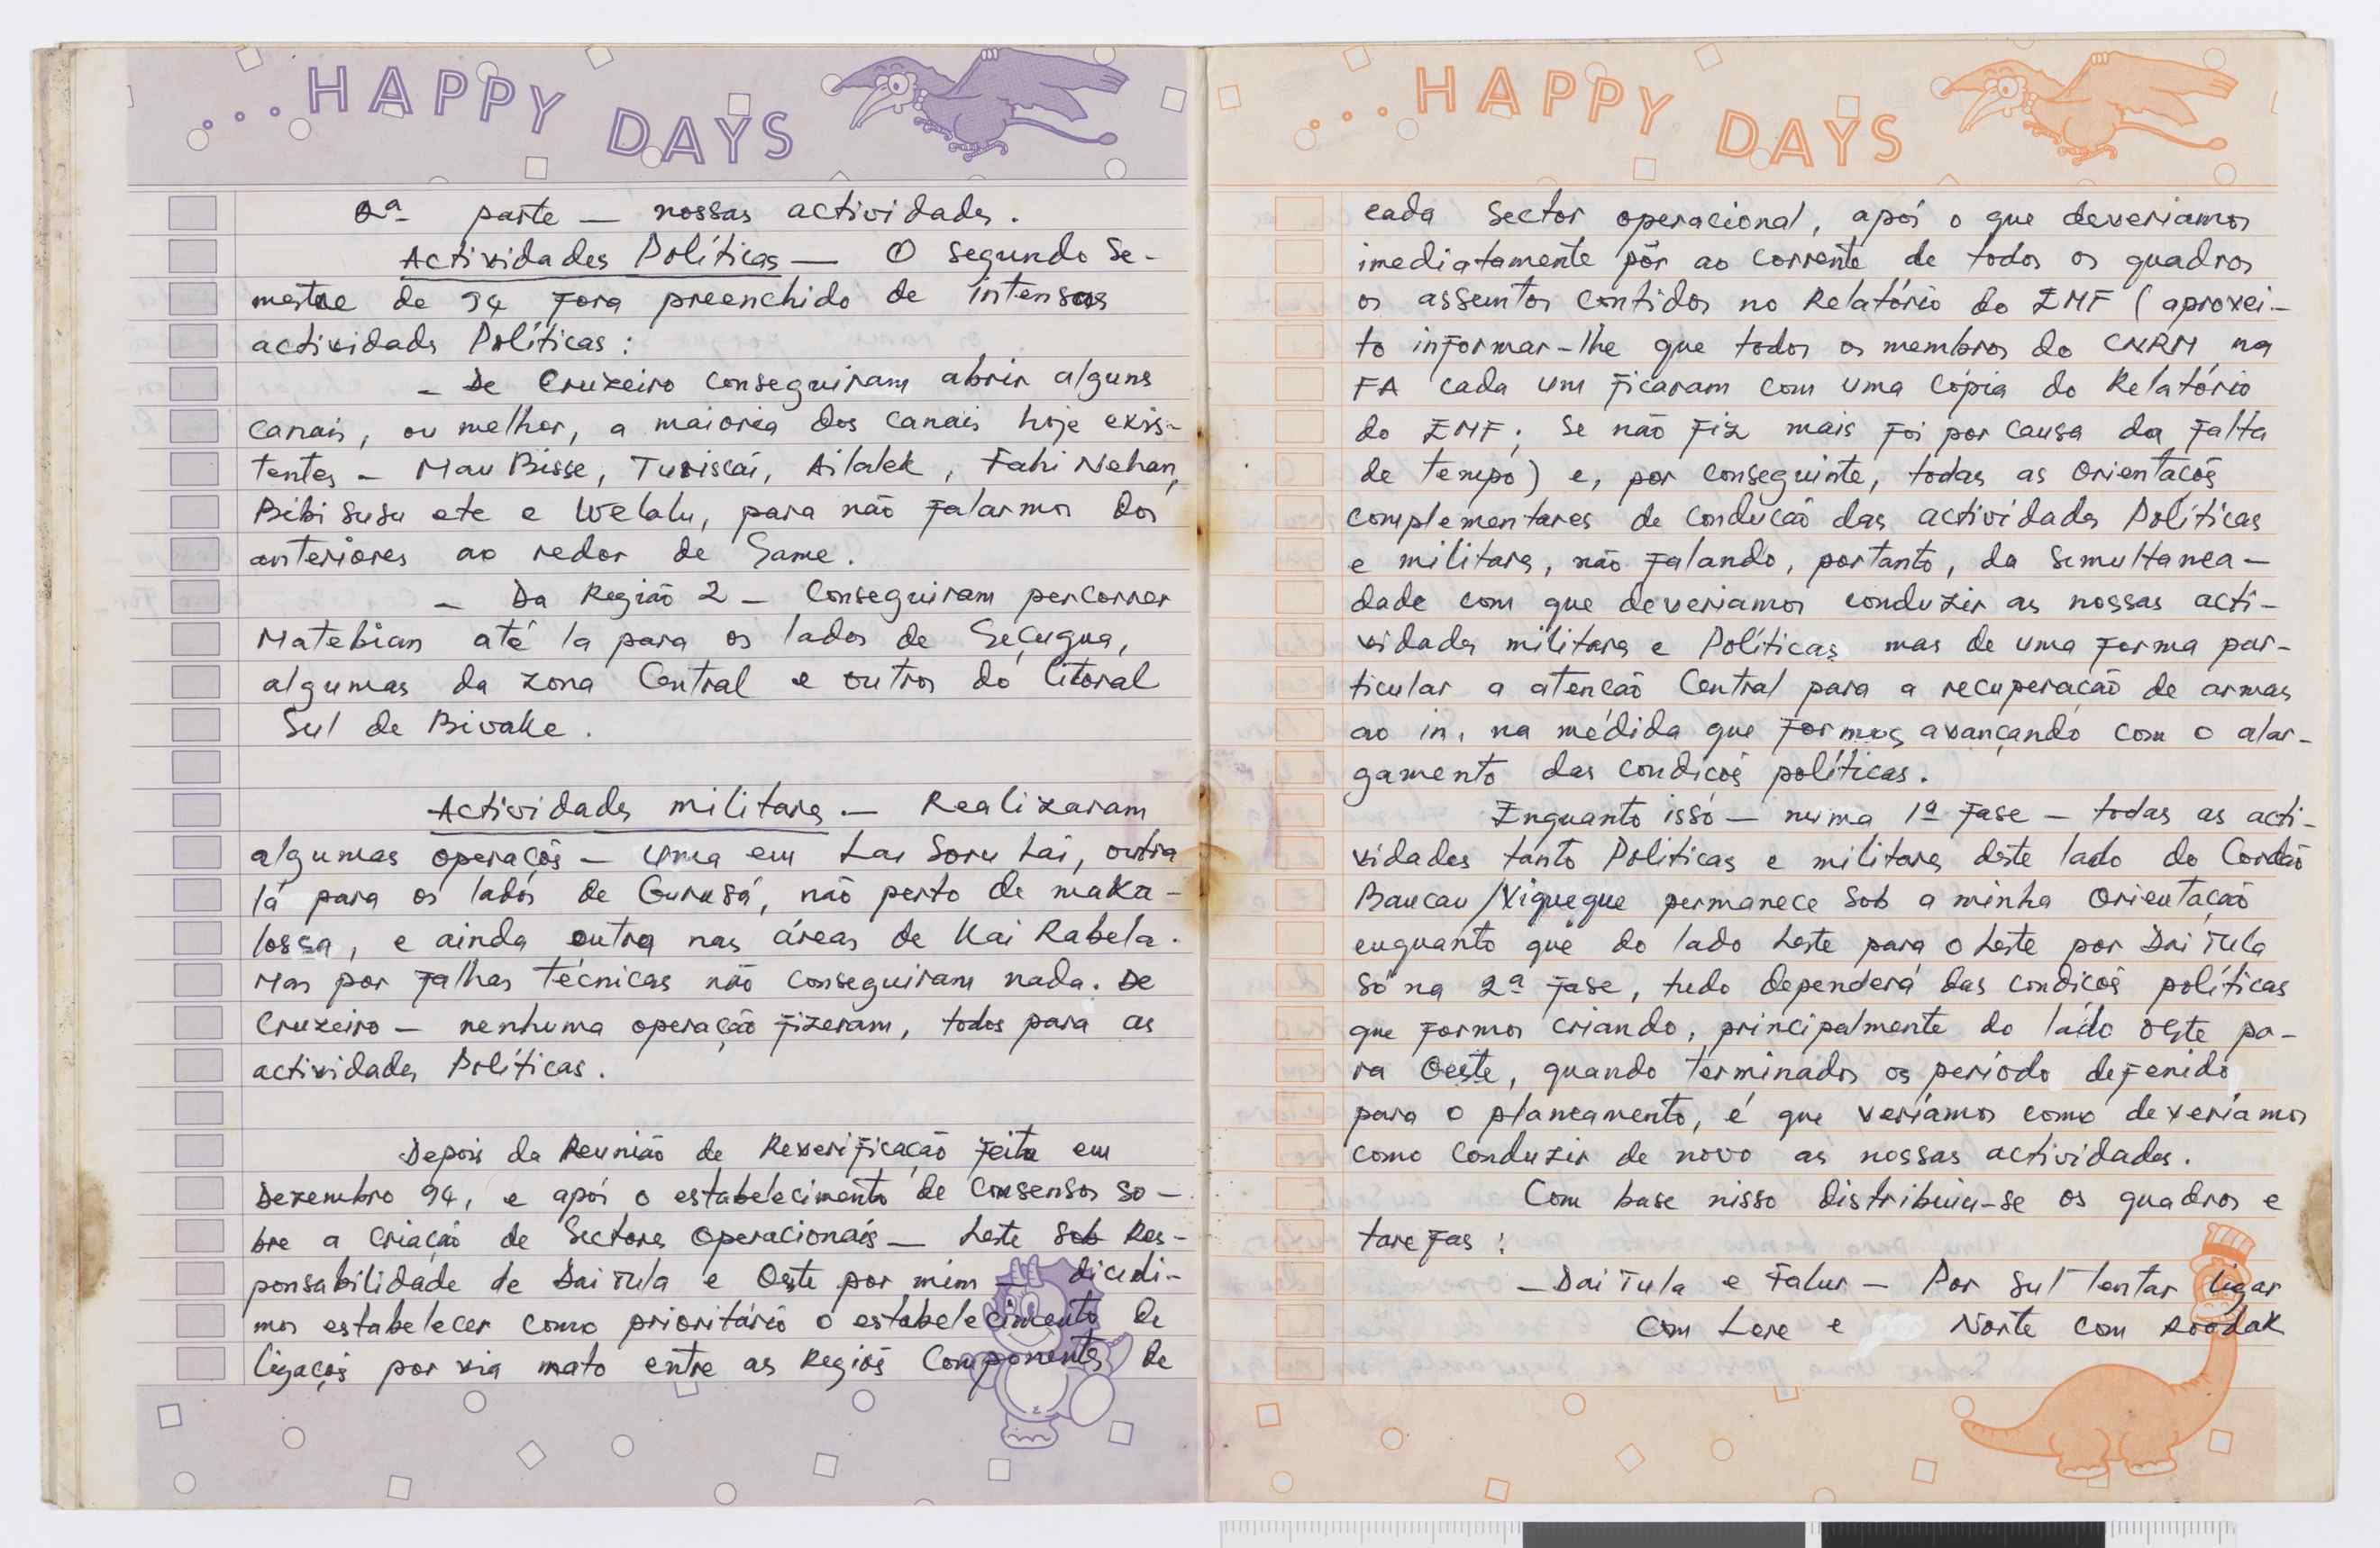 ...HAPPY DAYS
2ª parte — nossas actividades.
Actividades Políticas — O segundo Se-
mestre de 94 fora preenchido de intensas
actividades Políticas :
- De Cruzeiro conseguiram abrir alguns
canais, ou melhor, a maioria dos canais hoje exis-
tentes - Mau Bisse, Turiscai, Ailalek, Fahi Nehan,
Bibi Susu etc e Welalu, para não falarmos dos
anteriores ao redor de Same.
- Da Região 2 - Conseguiram percorrer
Matebian até la para os lados de Seçugua,
algumas da zona Central e outros do litoral
Sul de Bivake.
Actividades militares — Realizaram
algumas operações - uma em Lai Soru Lai, outra
lá para os lados de Gurusá, não perto de maka-
lossa, e ainda outra nas áreas de Kai Rabela.
Mas por falhas técnicas não conseguiram nada. De
Cruzeiro - nenhuma operação fizeram, todos para as
actividades Políticas.
Depois da Reunião de Reverificação feita em
Dezembro 94, e após o estabelecimento de consensos so-
bre a criação de Sectores Operacionais — Leste sob Res-
ponsabilidade de Dai Tula e Oeste por mim — dicidi-
mos estabelecer como prioritário o estabelecimento de
ligações por via mato entre as Regiões Componentes de
...HAPPY DAYS
cada Sector operacional, após o que deveriamos
imediatamente pôr ao corrente de todos os quadros
os assuntos contidos no Relatório do EMF (aprovei-
to informar-lhe que todos os membros do CNRM na
FA cada um ficaram com uma cópia do Relatório
do EMF; Se não fiz mais foi por causa da falta
de tempo) e, por conseguinte, todas as Orientações
complementares de condução das actividades Políticas
e militares, não falando, portanto, da Simultanea-
dade com que deveriamos conduzir as nossas acti-
vidades militares e Políticas mas de uma forma par-
ticular a atenção Central para a recuperação de armas
ao in, na médida que formos avançando com o alar-
gamento das condições políticas.
Enquanto isso — numa 1ª fase — todas as acti-
vidades tanto Politicas e militares deste lado do Cordão
Baucau/Viqueque permanece sob a minha Orientação
enquanto que do lado Leste para o Leste por Dai Tula
Só na 2ª fase, tudo dependerá das condições políticas
que formos criando, principalmente do lado oeste pa-
ra Oeste, quando terminados os periodo defenido
para o planeamento, é que veríamos como deveríamos
como conduzir de novo as nossas actividades.
Com base nisso distribuiu-se os quadros e
tarefas :
- Dai Tula e Falur - Por Sul tentar ligar
com Lere e Norte com Roodak